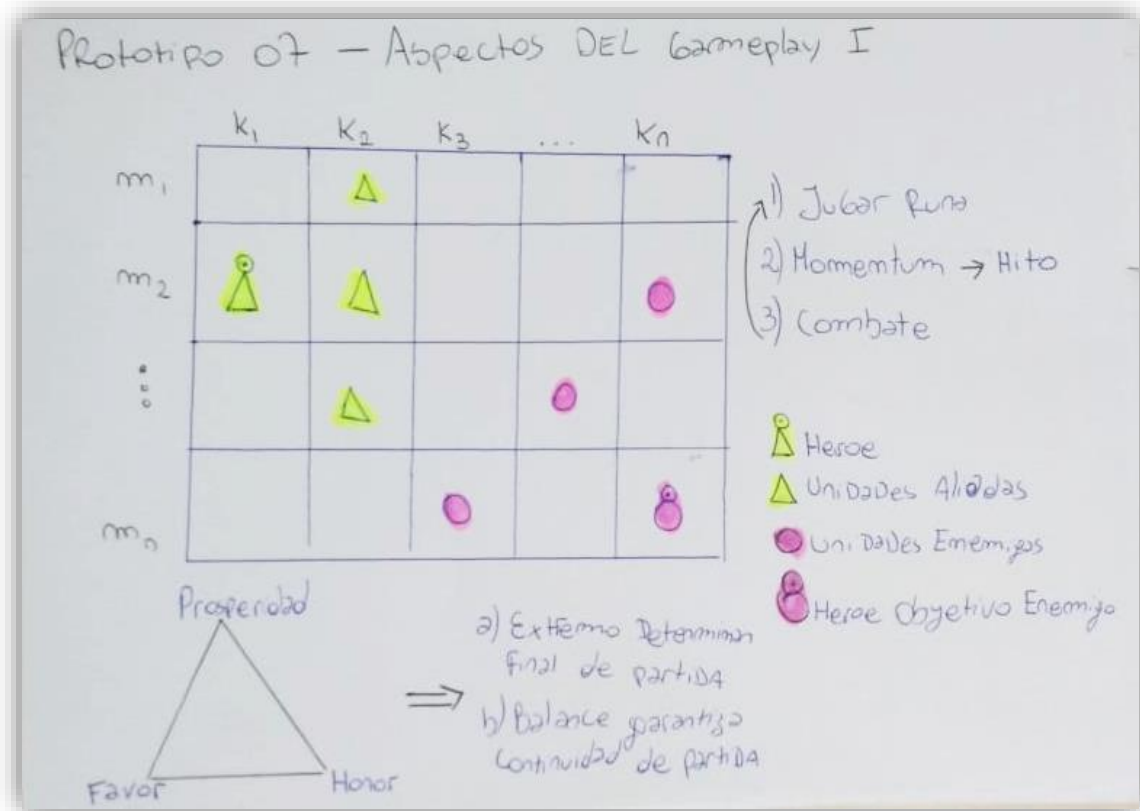 Prototipo 07 — Aspectos DEL Gameplay I
k₁ k₂ k₃ ... kn
m₁
m₂
⋮
mn
1) Jugar Runa
2) Momentum → Hito
3) Combate
Heroe
Unidades Aliadas
Unidades Enemigos
Heroe Objetivo Enemigo
Prosperidad
Favor
Honor
⇒
a) Extremo Determinan
final de partida
b) Balance garantiza
continuidad de partida